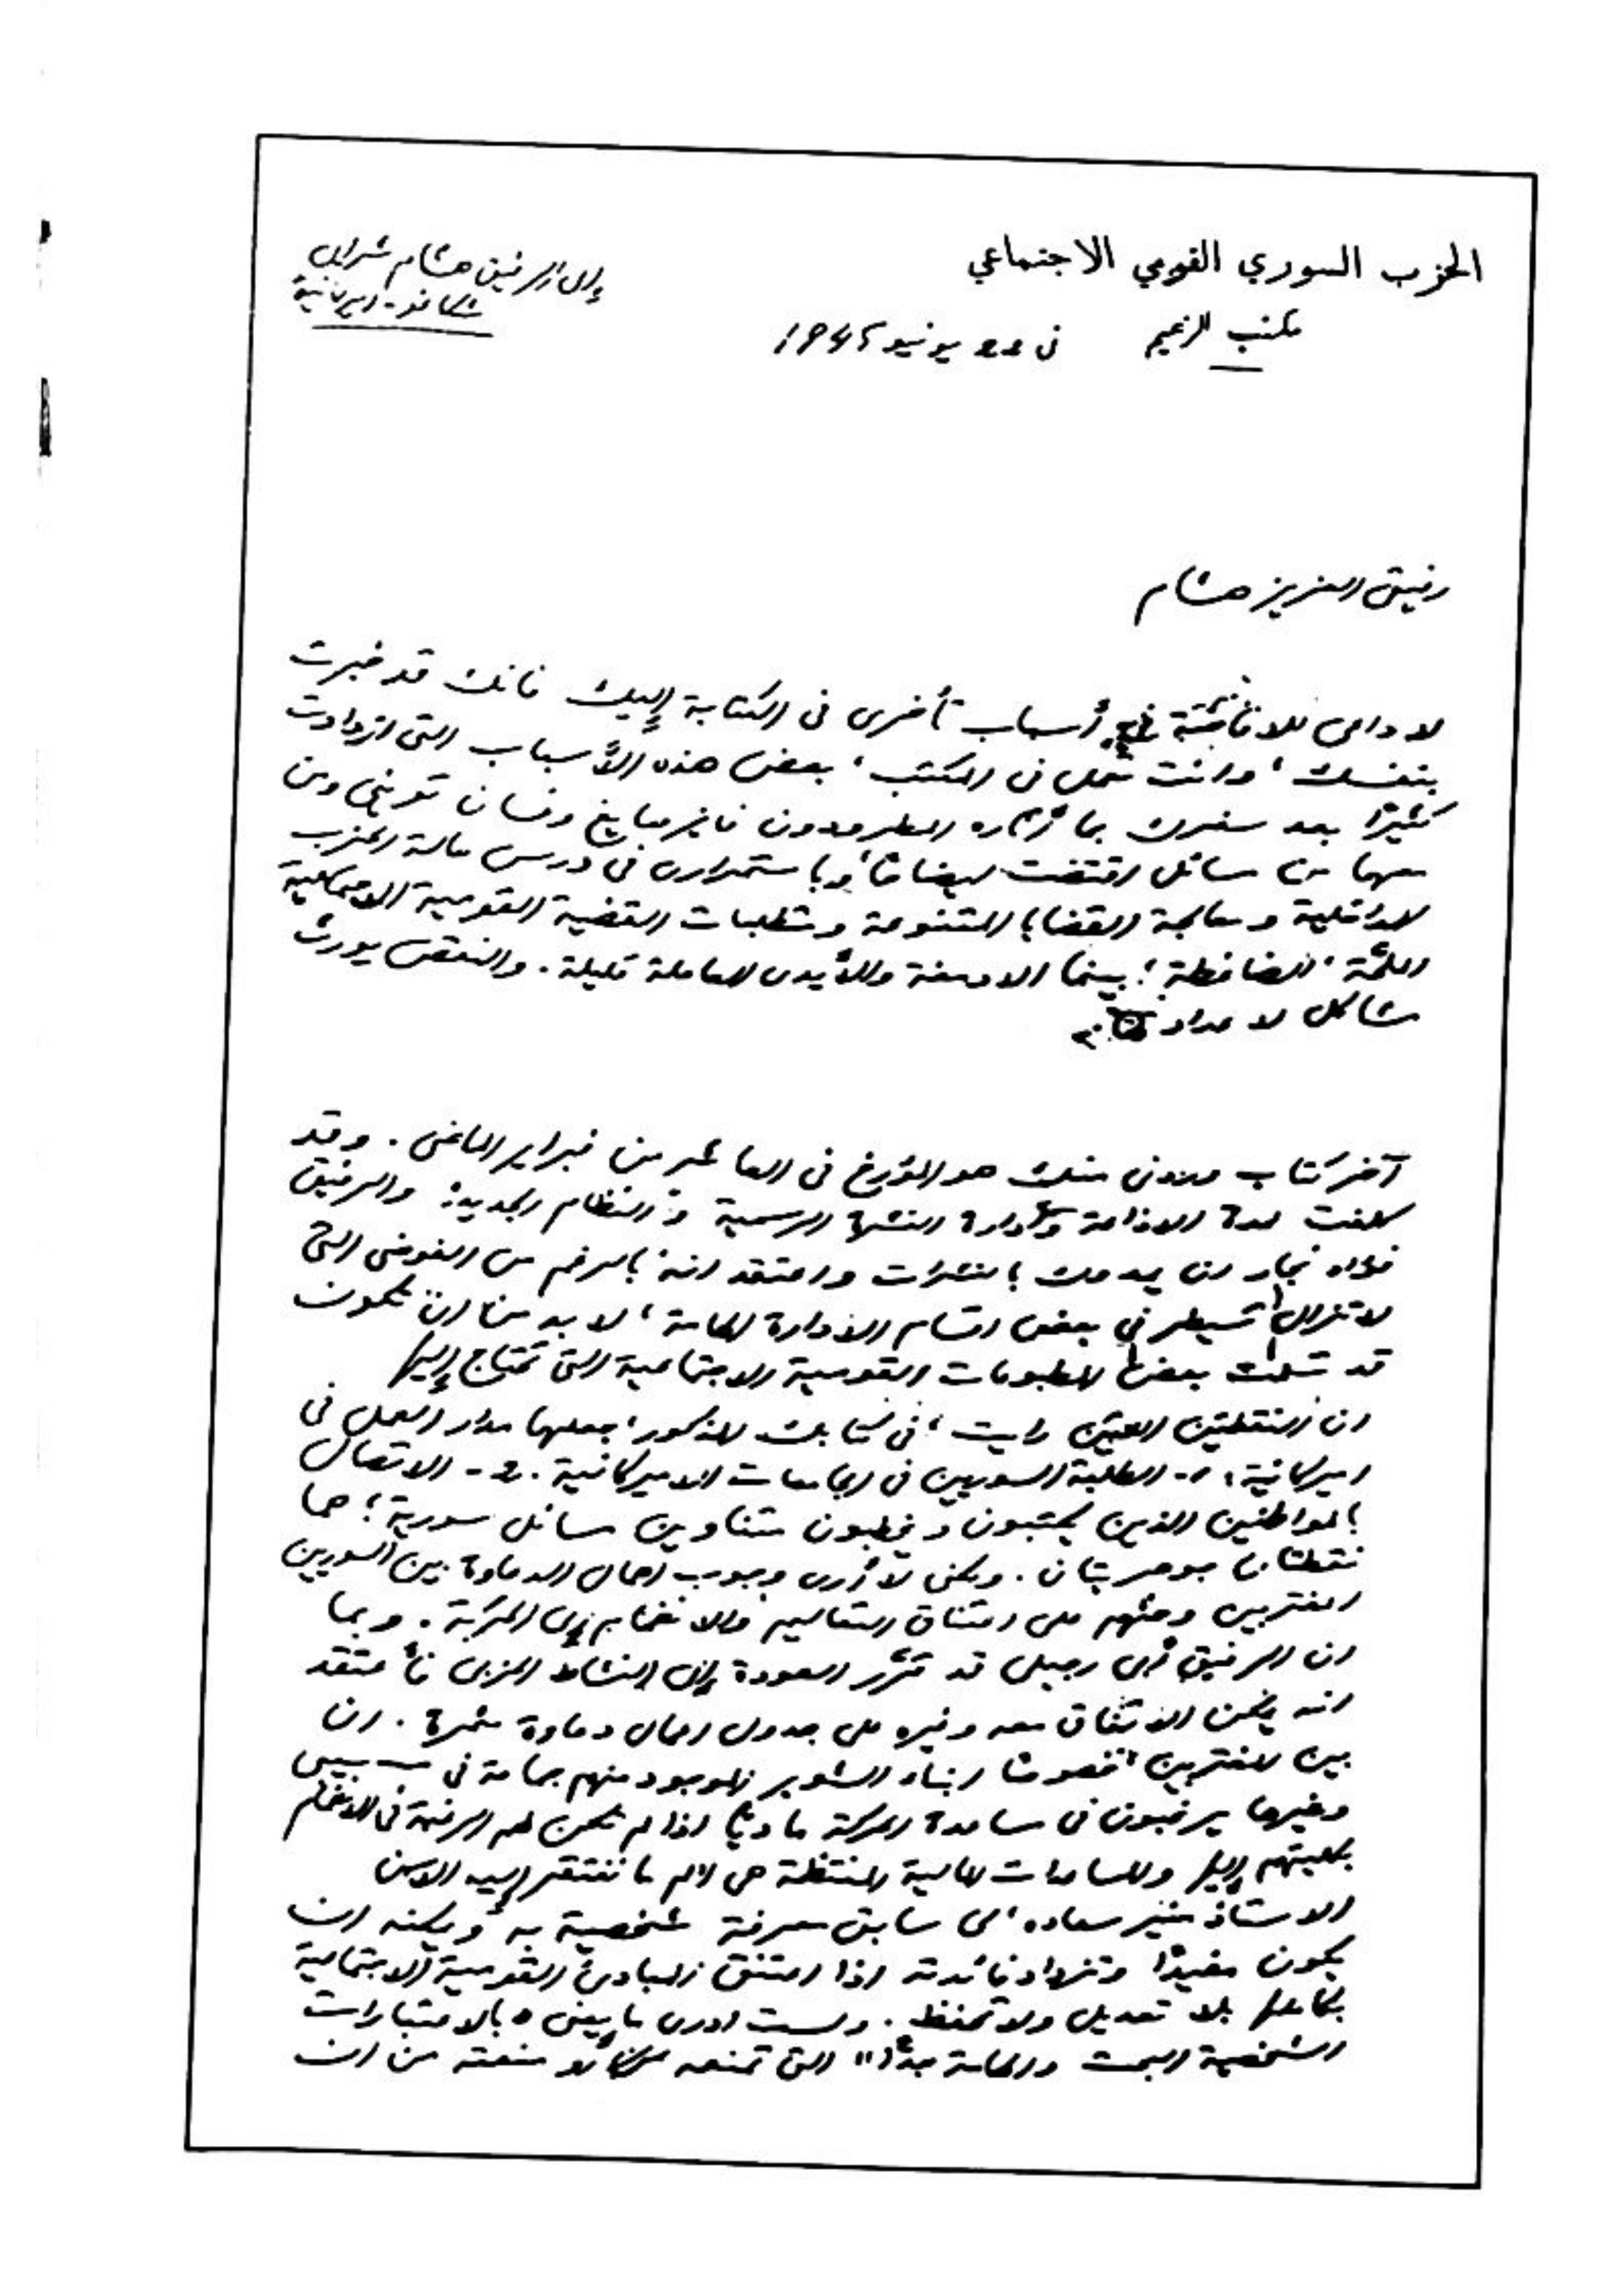 الحزب السوري القومي الاجتماعي
إلى الرفيق هشام شرابي
شيكاغو - اميركانية
مكتب الزعيم في 22 يونيو 194
رفيقي العزيز هشام
لا داعي للإفاضة في أسباب تأخري في الكتابة إليك فانك قد خبرت
بنفسك، وانت تعمل في المكتب، بعض هذه الأسباب التي ازدادت
كثيرًا بعد سفرك بما أثاره المطرودون فايز صايغ وغسان تويني ومن
معهما من مسائل اقتضت ايضاحًا وباستمراري في درس حالة الحزب
الداخلية ومعالجة القضايا المتنوعة ومتطلبات القضية القومية الاجتماعية
الملحّة، الضاغطة؛ بينما الادمغة والأيدي العاملة قليلة. والنقص يورث
مشاكل لا عداد
آخر كتاب وردني منك هو المؤرخ في العاشر من فبراير الماضي. وقد
كلفت عمدة الاذاعة وإدارة النشرة الرسمية و"النظام الجديد" والرفيق
فؤاد نجار ان يمدوك بالنشرات واعتقد انه بالرغم من الفوضى التي
لا تزال تسيطر في بعض اقسام الادارة العامة، لا بد من ان تكون
قد تسلمت بعض المطبوعات القومية الاجتماعية التي تحتاج إليها
ان النقطتين اللتين رايت، في كتابك المذكور، جعلهما مدار العمل في
اميركانية، 1- الطلبة السوريين في الجامعات الاميركانية. 2- الاتصال
بالمواطنين الذين يكتبون ويخطبون متناولين مسائل سورية؛ هما
نقطتان جوهريتان. ولكني لا أرى وجوب اهمال الدعاوة بين السوريين
المغتربين وحثهم على اعتناق التعاليم والانضمام إلى الحركة. وبما
ان الرفيق قد قرّر العودة إلى النشاط الحزبي فأعتقد
انه يمكن الاتفاق معه وغيره على جدول اعمال دعاوة مثمرة. ان
بين المغتربين، خصوصًا ابناء الشوير الموجود منهم جماعة في
وغيرها يرغبون في مساعدة الحركة ماديًا اذا لم تكن لهم الرغبة في الانضمام
بكليتهم إليها والمساعدات المالية المنتظمة هي اهم ما نفتقر إليه الآن
الاستاذ منير سعاده، لي سابق معرفة شخصية به ويمكنه ان
يكون مفيدًا وتزداد فائدته اذا اعتنق المبادئ القومية الاجتماعية
بكاملها بلا تعديل ولا تحفظ. ولست ادري ما يعني "بالاعتبارات
الشخصية البحت والهامة جدًّا" التي تمنعه منعته من ان